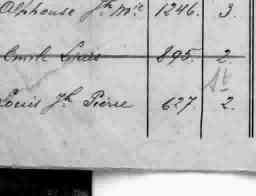 Alphonse Jh Mie 1246. 3.
Emile Louis 895. 2.
Louis Jh Pierre 627. 2.